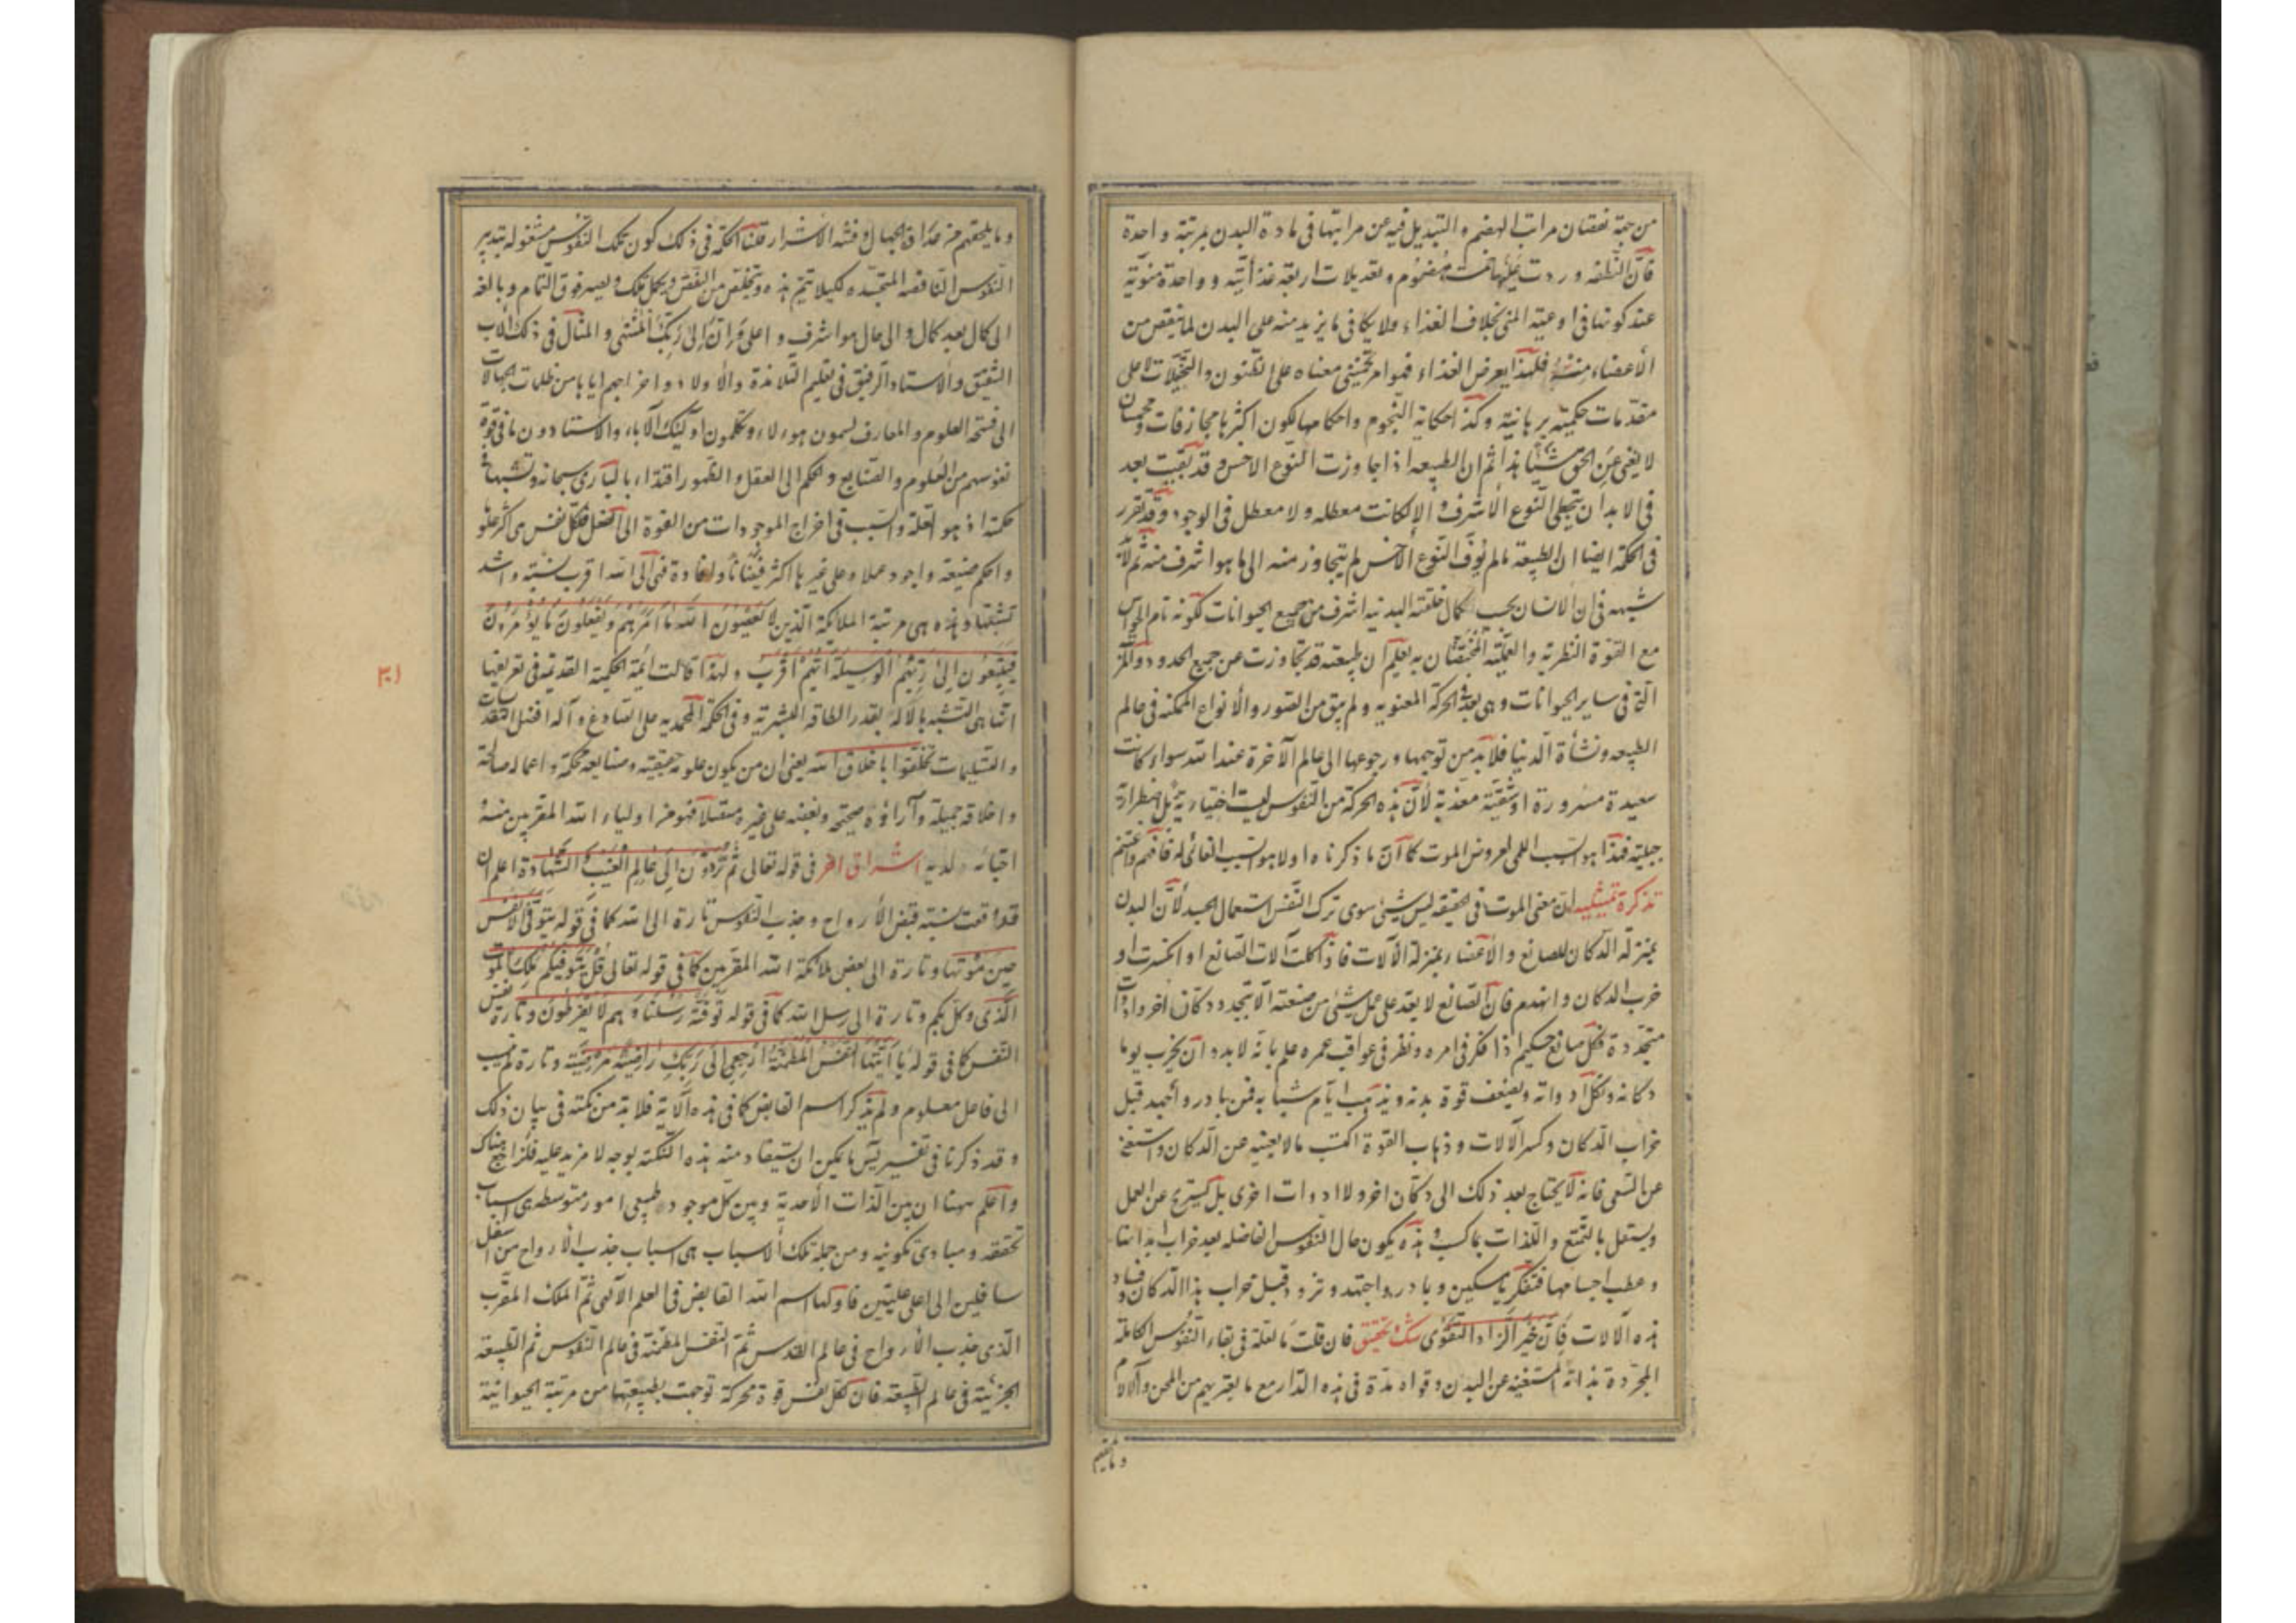 من جهة نقصان مراتب الهضم و التبديل فيه عن مراتبها فى مادة البدن بمرتبة واحدة
فان النطفه وردت عليها خمت هضوم و تعديلات اربعة غذائيه و واحدة منوية
عند كونها فى اوعية المنى بخلاف الغذاء ولا يكافى ما يزيد منه على البدن لما ينقص من
الأعضاء منه فلهذا يعرض الغذاء فهو امر تخمينى معناه على الظنون و التخيلات لا على
مقدمات حكمية برهانية وكذا حكاية النجوم واحكامها لكون اكثرها مجازفات و تخمينات
لا يغنى عن الحق شيئا هذا ثم ان الطبيعه اذا جاوزت النوع الاخس وقد بقيت بعد
فى لا بد ان يتخطى النوع الأشرف و الا لكانت معطله ولا معطل فى الوجود وقد تقرر
فى الحكمة ايضا ان الطبيعة ما لم يوف النوع الأخس لم يتجاوز منه الى ما هو اشرف منه ثم لا
شبهه فى ان الانسان بحسب كمال خلقته البدنيه اشرف من جميع الحيوانات لكونه تام الحواس
مع القوة النظرية والعملية المختصتان به يعلم ان طبيعته قد تجاوزت عن جميع الحدود والمراتب
التى فى ساير الحيوانات وهى بعد فى الحركة المعنويه ولم يبق من الصور والأنواع الممكنه فى عالم
الطبيعه ونشأة الدنيا فلا بد من توجهها و رجوعها الى عالم الآخرة عند الله سواء كانت
سعيدة مسرورة او شقية معذبة لأن هذه الحركة من النفوس ليست اختيارية بل اضطرارية
جبلية فهذا هو السبب اللمى لعروض الموت كما ان ما ذكرناه اولا هو السبب الغائى له فافهم واغتنم
تذكرة تمثيليه ان معنى الموت فى الحقيقه ليس شيئ سوى ترك النفس استعمال الجسد لأن البدن
بمنزلة الدكان للصانع والأعضاء بمنزلة الآلات فاذا كلت آلات الصانع او انكسرت او
خرب الدكان و انهدم فان الصانع لا يقدر على عمل شيئ من صنعته الا يتجدد دكان اخر وادوات
متجددة فكل صانع حكيم اذا فكر فى امره و نظر فى عواقب عمره علم بانه لا بد و ان يخرب يوما
دكانه وتكل ادواته ويضعف قوة بدنه ويذهب ايام شبابه فمن بادر و أجتهد قبل
خراب الدكان وكسر الآلات و ذهاب القوة اكتسب مالا يغنيه عن الدكان و استغنى
عن السعى فانه لا يحتاج بعد ذلك الى دكان اخر ولا ادوات اخرى بل يستريح عن العمل
ويستقل بالتمتع واللذات بما كسب و هذه يكون حال النفوس الفاضله بعد خراب ابدانها
وعطب اجسامها فتفكر يا مسكين و بادر و اجتهد و تزود قبل خراب هذا الدكان و فساد
هذه الآلات فان خير الزاد التقوى شك و تحقيق فان قلت ما العلة فى بقاء النفوس الكاملة
المجردة بذاته المستغنيه عن البدن وقواه مدة فى هذه الدار مع ما يعتريهم من المحن والآلام
وما يلحقهم
وما يلحقهم من الجهال و فتنه الأشرار قلنا الحكمة فى ذلك كون تلك النفوس مشغوله بتدبير
النفوس الناقصه المتجسده لكيلا يتم هذه و يتخلص من النقص و يكمل تلك و يصير فوق التمام وبالغه
الى كمال بعد كمال و الى حال هو اشرف و اعلى وان الى ربك المنتهى والمثال فى ذلك الأب
الشفيق والاستاد الرفيق فى تعليم التلامذة والأولاد واخراجهم اياها من ظلمات الجهالات
الى فتحة العلوم و المعارف ليتمون هؤلاء و يكملون اولئك الآباء والاستادون ما فى قوة
نفوسهم من العلوم و الصنايع والحكم الى العقل والظهور اقتداء بالبارى سبحانه وتشبها فى
حكمته اذ هو العلة و السبب فى اخراج الموجودات من القوة الى الفعل فكل نفس هى اكثر علوما
واحكم صنيعة واجود عملا و على غيرها اكثر فيضانا و افادة فهى الى الله اقرب نسبته واشد
تشبها وهذه هى مرتبة الملائكة الذين لا يعصون الله ما امرهم ويفعلون ما يؤمرون
يبتغون الى ربهم الوسيلة ايهم اقرب ولهذا قالت ائمة الحكمة القديمة فى تعريفها
انها هى التشبه بالاله بقدر الطاقه البشرية وفى الحكمة المحمديه على الصادع و آله افضل التقديسات
والتسليمات تخلقوا باخلاق الله يعنى ان من يكون علومه حقيقيه و صنايعه محكمة و اعماله صالحة
واخلاقه جميلة و آراؤه صحيحة و فيضه على غيره متصلا فهو من اولياء الله المقربين منه
احبائه لديه اشراق اخر فى قوله تعالى ثم تردون الى عالم الغيب و الشهادة اعلم ان
قد وقعت نسبته قبض الأرواح و جذب النفوس تارة الى الله كما فى قوله يتوفى الأنفس
حين موتها وتارة الى بعض ملائكة الله المقربين كما فى قوله تعالى قل يتوفيكم ملك الموت
الذى وكل بكم وتارة الى رسل الله كما فى قوله توفته رسلنا وهم لا يفرطون وتارة الى نفس
النفس كما فى قوله يا ايتها النفس المطمئنة ارجعى الى ربك راضية مرضية وتارة لم ينسب
الى فاعل معلوم ولم يذكر اسم القابض كما فى هذه الآية فلا بد من نكته فى بيان ذلك
وقد ذكرنا فى تفسير يس ما يمكن ان يستفاد منه هذه النكته بوجه لا مزيد عليه فلتراجع هناك
واعلم ههنا ان بين الذات الأحدية وبين كل موجود طبيعى امور متوسطه هى اسباب
تحققه و مبادى تكونه ومن جمله تلك الأسباب هى اسباب جذب الأرواح من اسفل
سافلين الى اعلى عليين فاولها اسم الله القابض فى العلم الآلهى ثم الملك المقرب
الذى جذب الأرواح فى عالم القدس ثم النفس المطمئنة فى عالم النفوس ثم الطبيعة
الجزئية فى عالم الطبيعة فان لكل نفس قوة محركة توجهت بطبيعتها من مرتبة الحيوانية